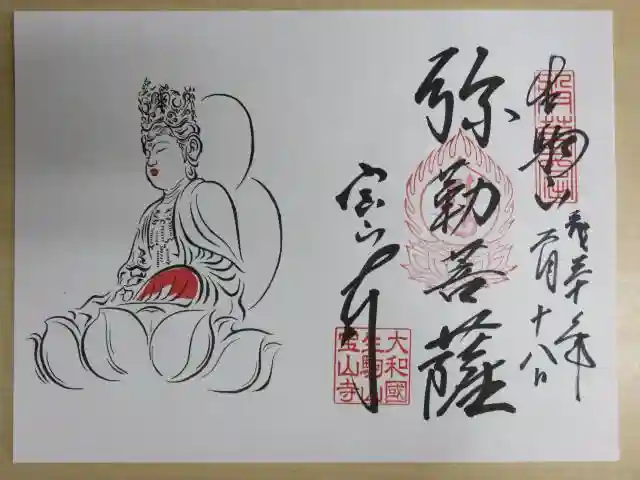 生駒山
三十年
月十八日
弥勒菩薩
宝山寺
大和國
生駒山
宝山寺